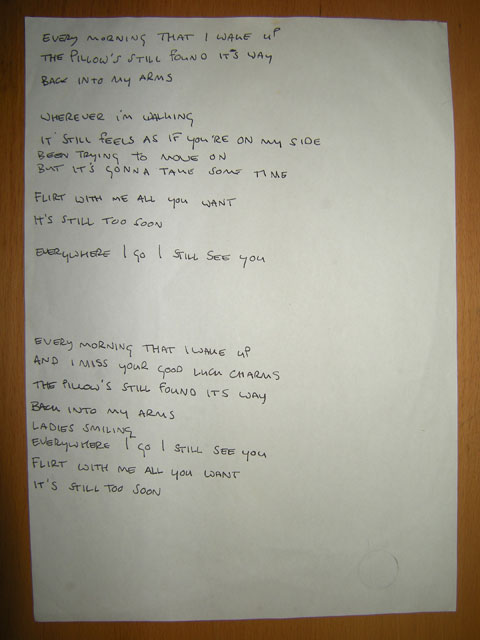 EVERY MORNING THAT I WAKE UP
THE PILLOW'S STILL FOUND IT'S WAY
BACK INTO MY ARMS
WHEREVER I'M WALKING
IT STILL FEELS AS IF YOU'RE ON MY SIDE
BEEN TRYING TO MOVE ON
BUT IT'S GONNA TAKE SOME TIME
FLIRT WITH ME ALL YOU WANT
IT'S STILL TOO SOON
EVERYWHERE I GO I STILL SEE YOU
EVERY MORNING THAT I WAKE UP
AND I MISS YOUR GOOD LUCK CHARMS
THE PILLOW'S STILL FOUND ITS WAY
BACK INTO MY ARMS
LADIES SMILING
EVERYWHERE I GO I STILL SEE YOU
FLIRT WITH ME ALL YOU WANT
IT'S STILL TOO SOON